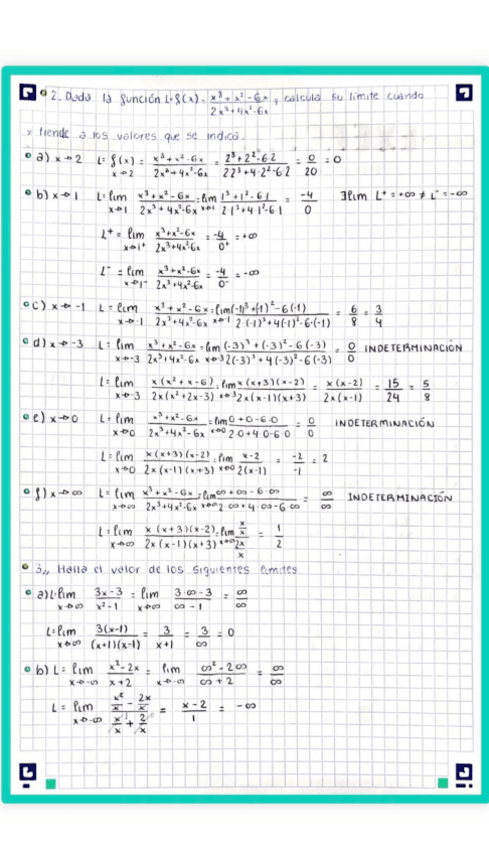 2. Dada la función L=f(x) = (x³+x²-6x)/(2x³+4x²-6x), calcula su límite cuando
x tiende a los valores que se indica.
a) x→2 L=f(x) x→2 = (x³+x²-6x)/(2x³+4x²-6x) = (2³+2²-6·2)/(2·2³+4·2²-6·2) = 0/20 = 0
b) x→1 L=lim x→1 (x³+x²-6x)/(2x³+4x²-6x) = lim x→1 (1³+1²-6·1)/(2·1³+4·1²-6·1) = -4/0 ∃lim L⁺=+∞ ≠ L⁻=-∞
L⁺= lim x→1⁺ (x³+x²-6x)/(2x³+4x²-6x) = -4/0⁺ = +∞
L⁻= lim x→1⁻ (x³+x²-6x)/(2x³+4x²-6x) = -4/0⁻ = -∞
c) x→-1 L=lim x→-1 (x³+x²-6x)/(2x³+4x²-6x) = lim x→-1 ((-1)³+(-1)²-6(-1))/(2·(-1)³+4(-1)²-6·(-1)) = 6/8 = 3/4
d) x→-3 L=lim x→-3 (x³+x²-6x)/(2x³+4x²-6x) = lim x→-3 ((-3)³+(-3)²-6(-3))/(2(-3)³+4(-3)²-6(-3)) = 0/0 INDETERMINACIÓN
L=lim x→-3 x(x²+x-6)/2x(x²+2x-3) = lim x→-3 x(x+3)(x-2)/2x(x-1)(x+3) = x(x-2)/2x(x-1) = 15/24 = 5/8
e) x→0 L=lim x→0 (x³+x²-6x)/(2x³+4x²-6x) = lim x→0 (0+0-6·0)/(2·0+4·0-6·0) = 0/0 INDETERMINACIÓN
L=lim x→0 x(x+3)(x-2)/2x(x-1)(x+3) = lim x→0 (x-2)/2(x-1) = -2/-1 = 2
f) x→∞ L=lim x→∞ (x³+x²-6x)/(2x³+4x²-6x) = lim x→∞ (∞+∞-6·∞)/(2·∞+4·∞-6∞) = ∞/∞ INDETERMINACIÓN
L=lim x→∞ x(x+3)(x-2)/2x(x-1)(x+3) = lim x→∞ (x/x)/(2x/x) = 1/2
3,, Halla el valor de los siguientes límites
a) L=lim x→∞ (3x-3)/(x²-1) = lim x→∞ (3·∞-3)/(∞-1) = ∞/∞
L=lim x→∞ 3(x-1)/(x+1)(x-1) = 3/(x+1) = 3/∞ = 0
b) L= lim x→-∞ (x²-2x)/(x+2) = lim x→-∞ (∞²-2∞)/(∞+2) = ∞/∞
L= lim x→-∞ (x²/x - 2x/x)/(x/x + 2/x) = (x-2)/1 = -∞